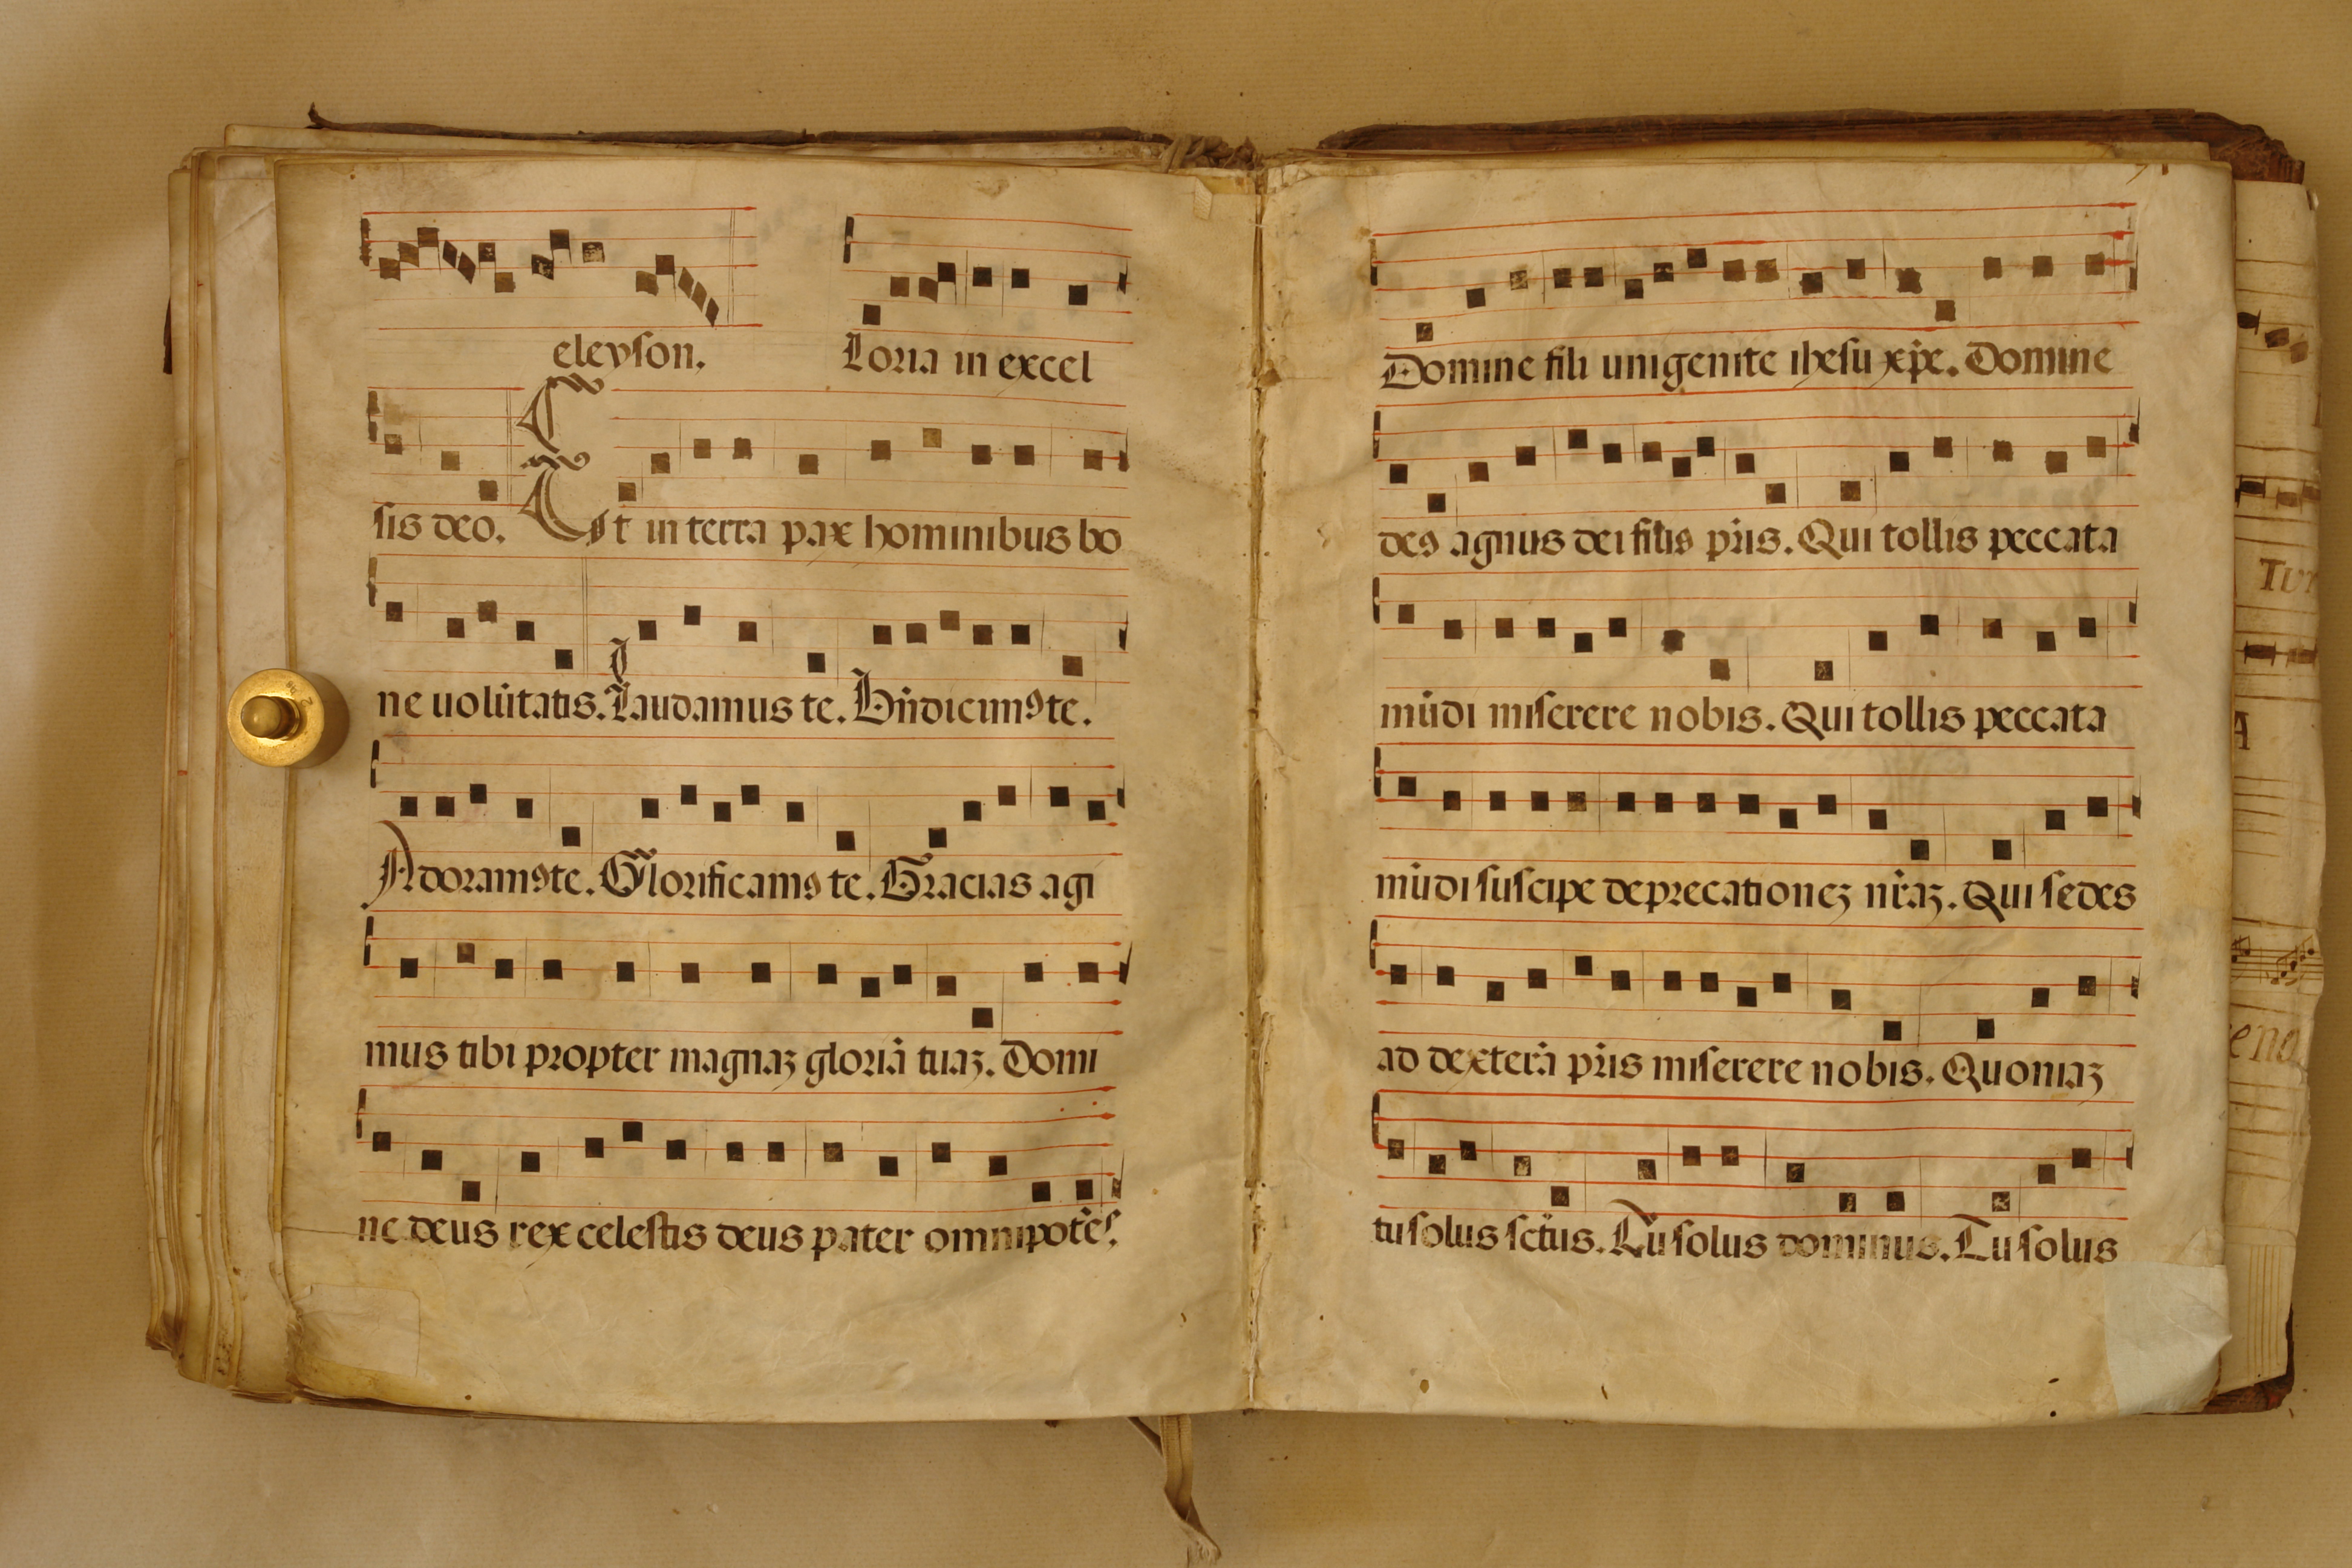 eleyson. Loria in excel
sis deo. Et in terra pax hominibus bo
ne uolũtatis. Laudamus te. Bñdicimꝰ te.
Adoramꝰ te. Glorificamꝰ te. Gracias agi
mus tibi propter magnaꝫ gloriã tuaꝫ. Domi
ne deus rex celestis deus pater omnipotẽs.
Domine fili unigenite ihesu xp̃e. Domine
deꝰ agnus dei filiꝰ p̃ris. Qui tollis peccata
mũdi miserere nobis. Qui tollis peccata
mũdi suscipe deprecationeꝫ nr̃aꝫ. Qui sedes
ad dexterã p̃ris miserere nobis. Quoniaꝫ
tu solus sc̃tus. Tu solus dominus. Tu solus